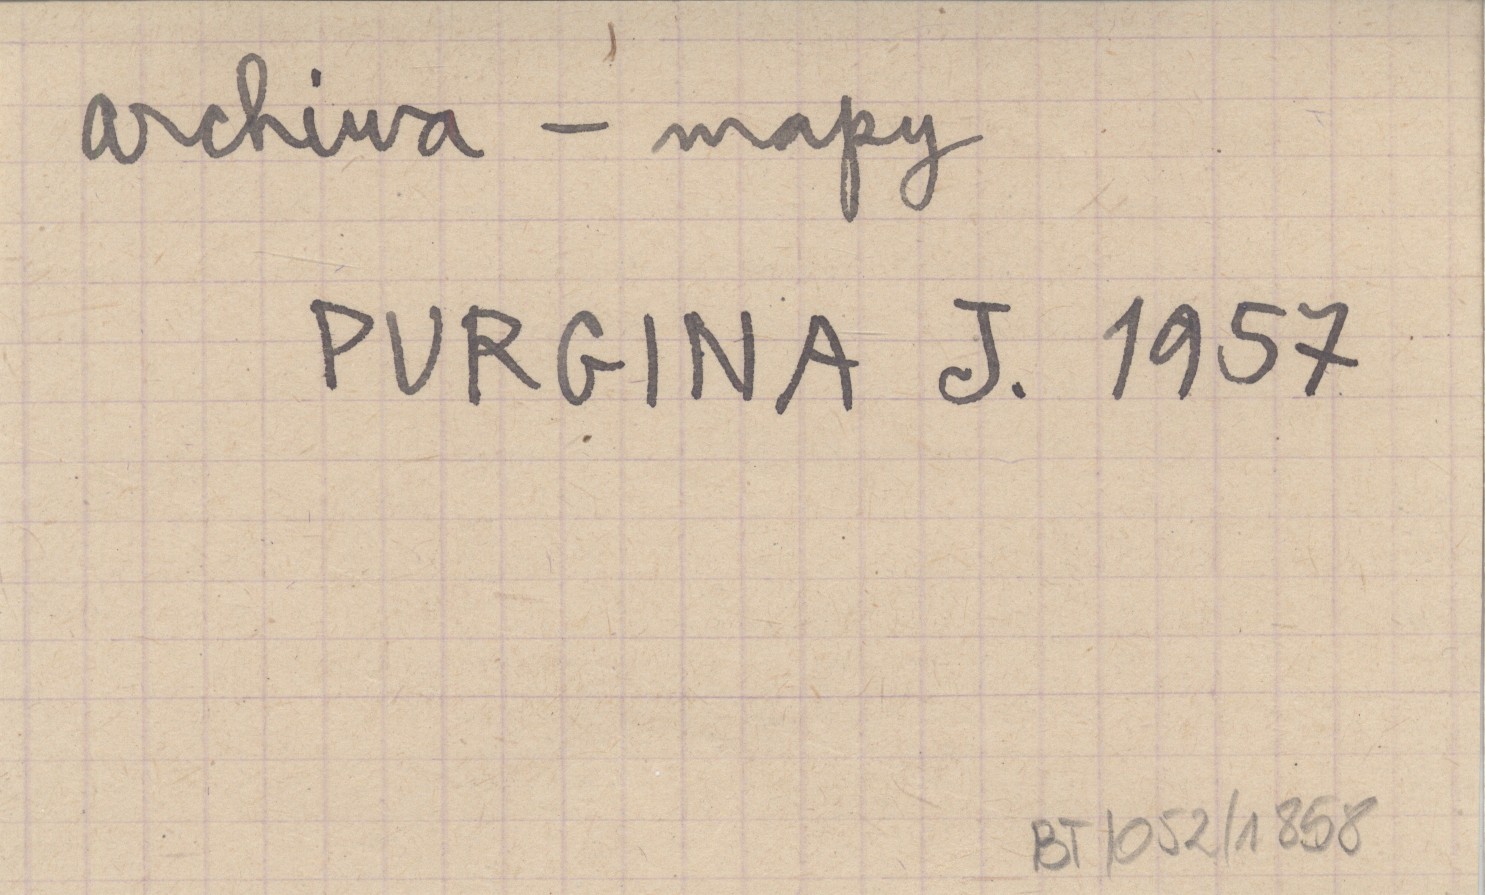 archiwa – mapy
PURGINA J. 1957
BT/052/1858